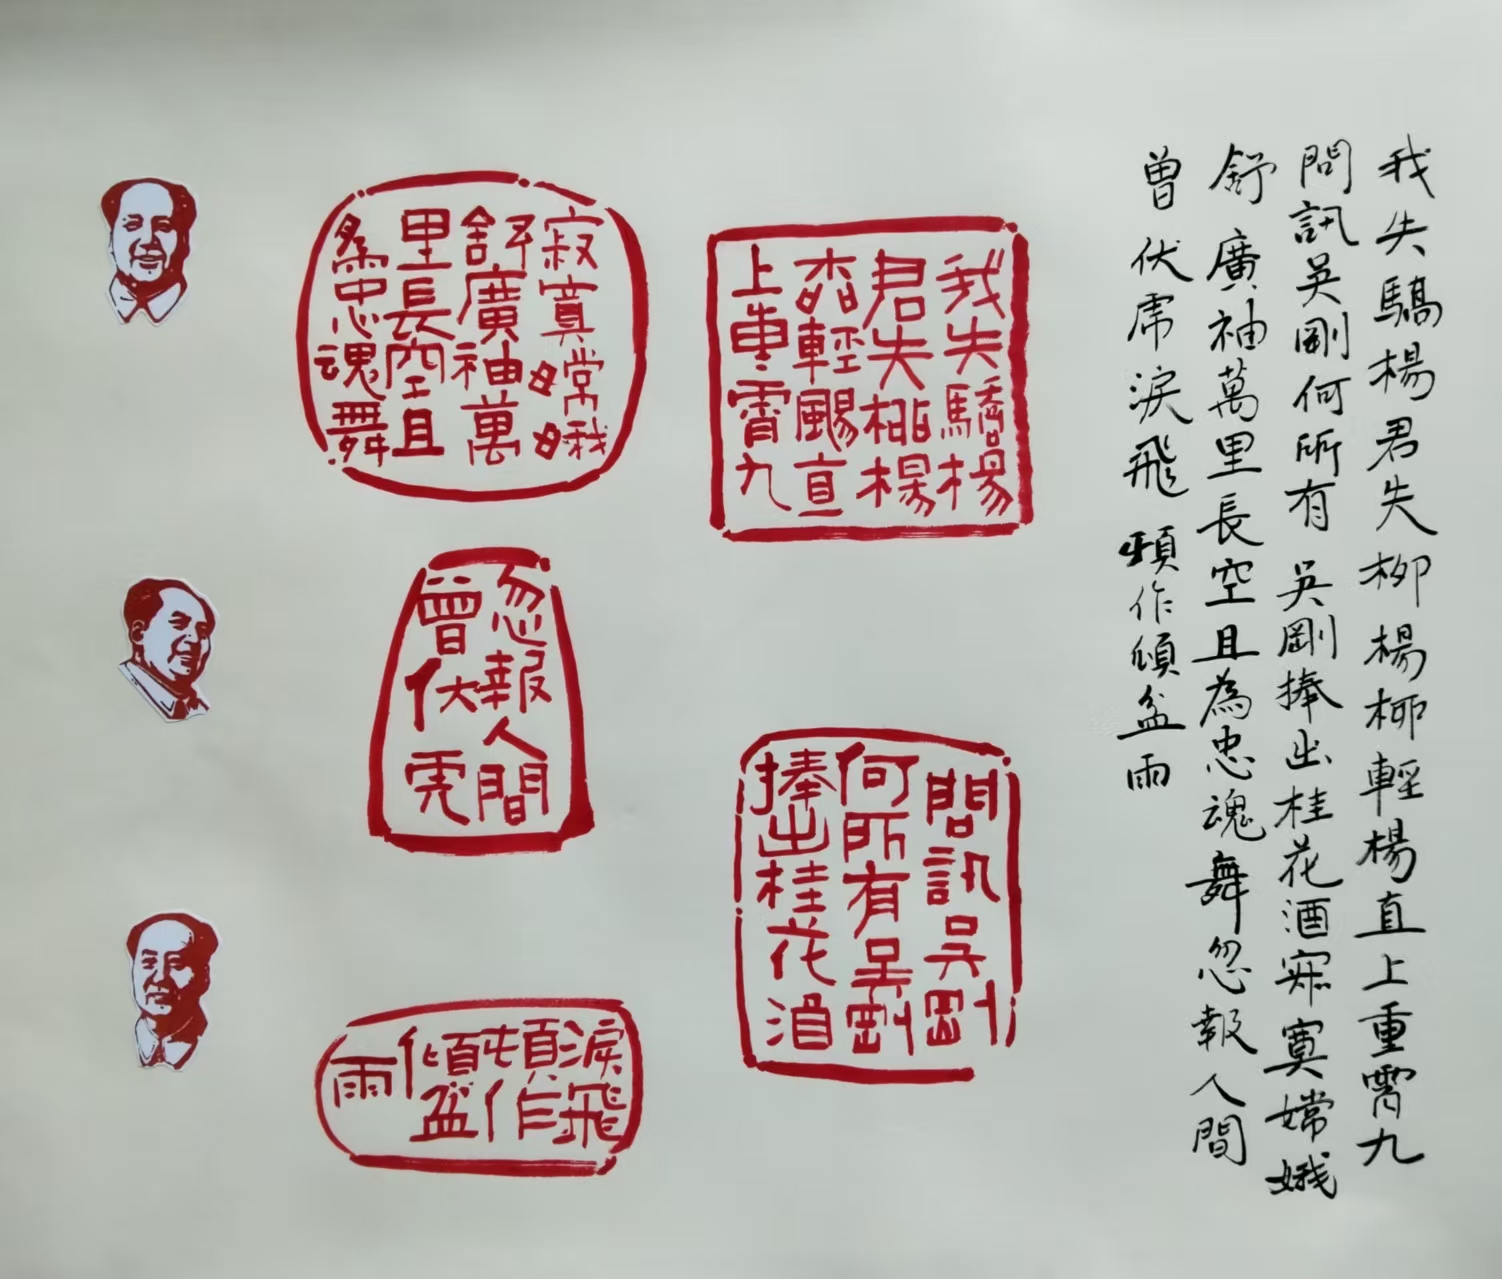 我失驕楊君失柳楊柳輕楊直上重霄九
問訊吳剛何所有吳剛捧出桂花酒寂寞嫦娥
舒廣袖萬里長空且為忠魂舞忽報人間
曾伏虎淚飛頓作傾盆雨
我失驕楊
君失桃楊
輕颺直
上重霄九
問訊吳剛
何所有吳剛
捧出桂花酒
寂寞嫦娥
舒廣袖萬
里長空且
為忠魂舞
忽報人間
曾伏虎
淚飛
頓作
傾盆
雨